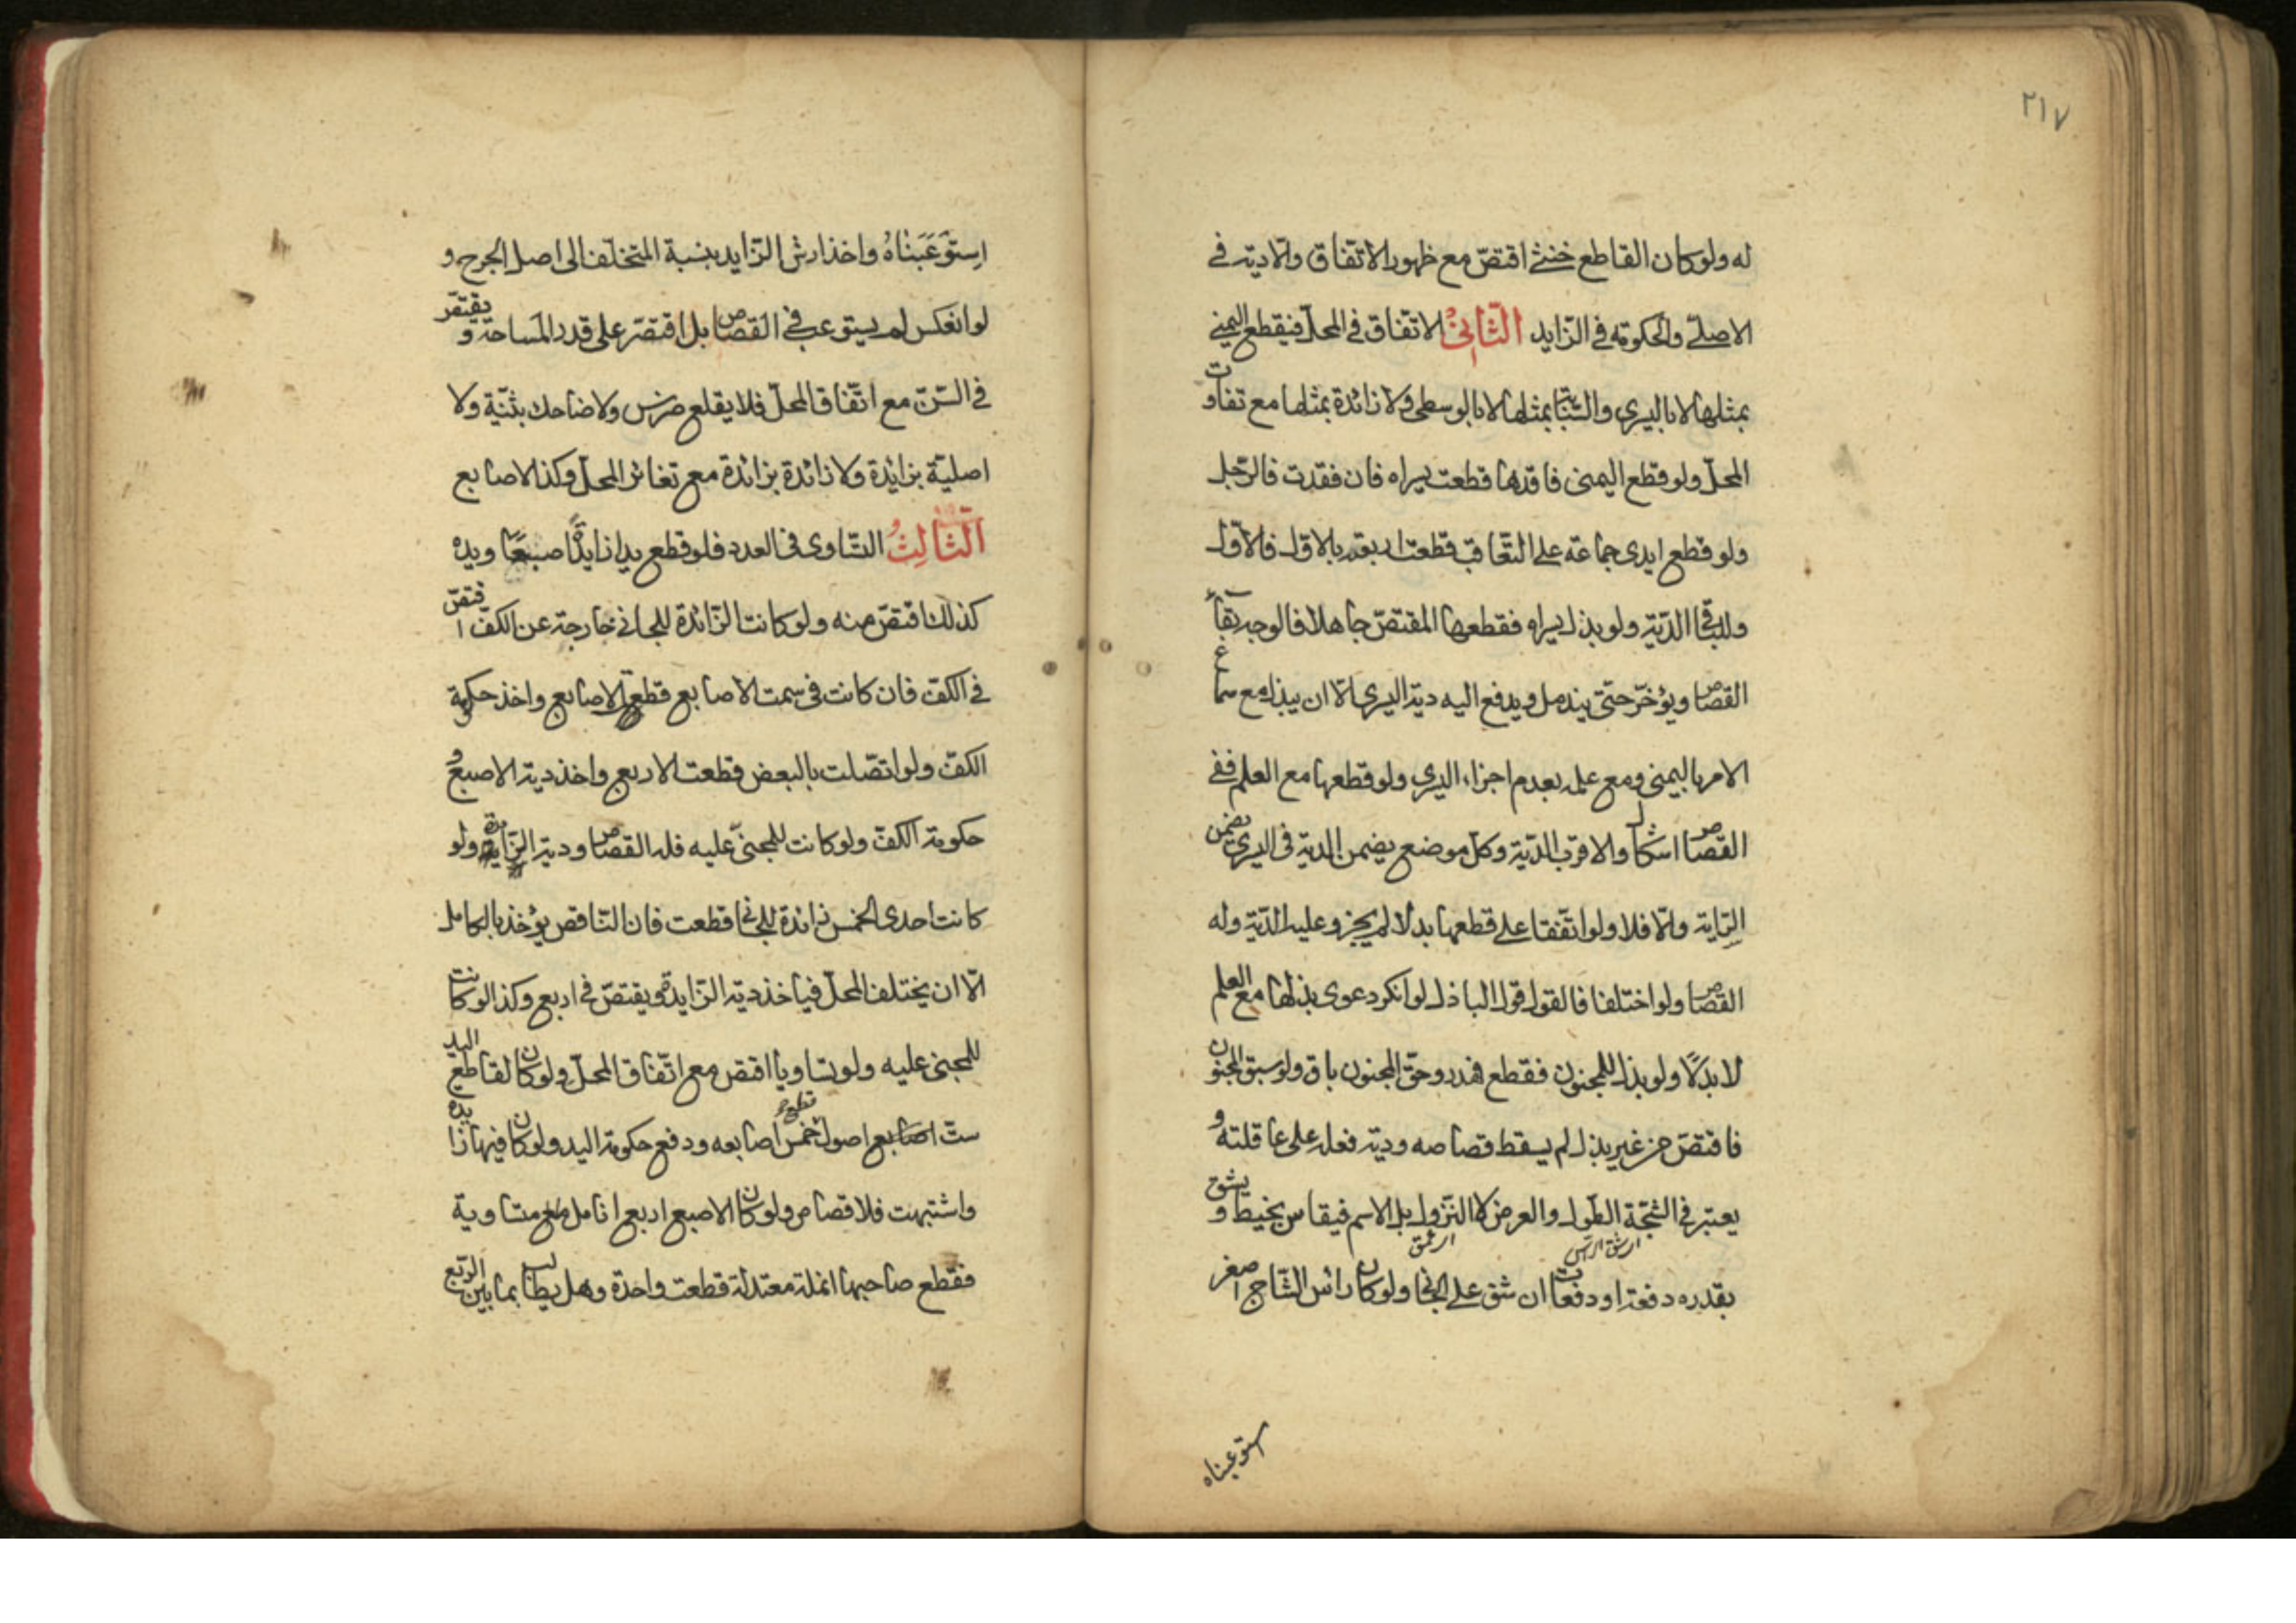 ٢١٧
له ولو كان القاطع خنثى اقتصّ مع ظهور الاتفاق والّا ديته في
الاصلي والحكومة في الزّايد الثّاني الاتّفاق في المحلّ فيقطع اليمنى
بمثلها لا باليسرى والسّبّابة بمثلها لا بالوسطى ولا زائدة بمثلها مع تفاوت
المحلّ ولو قطع اليمنى فاقدها قطعت يسراه فان فقدت فالرّجل
ولو قطع ايدى جماعة على التّعاقب قطعت اربعته بالاوّل فالاوّل
وللباقي الدّية ولو بذل يسراه فقطعها المقتصّ جاهلا فالوجه بقاء
القصاص ويؤخّر حتّى يندمل ويدفع اليه دية اليسرى الّا ان يبذل مع سماع
الامر باليمنى ومع علمه بعدم اجزاء اليسرى ولو قطعها مع العلم ففي
القصاص اشكال والاقرب الدّية وكلّ موضع يضمن الدية في اليسرى يضمن
السّراية والّا فلا ولو اتّفقا على قطعها بدلا لم يجز وعليه الدّية وله
القصاص ولو اختلفا فالقول قول الباذل لو انكر دعوى بذلها مع العلم
لا بدلًا ولو بذل للمجنون فقطع هدر وحقّ المجنون باق ولو سبق المجنون
فاقتصّ من غير بذل لم يسقط قصاصه ودية فعله على عاقلته و
يعتبر في الشّجّة الطّول والعرض لا النّزول بل الاسم فيقاس بخيط و يشق
بقدره دفعة او دفعات ان شقّ على الجاني ولو كان رأس الشّاج اصغر
ستوعبناه
اِستَوعَبَناهُ واخذ ارش الزّايد بنسبة المتخلّف الى اصل الجرح و
لو انعكس لم يستوعب في القصاص بل اقتصر على قدر المساحة و يقتصّ
في السّنّ مع اتّفاق المحلّ فلا يقلع ضرس ولا ضاحك بثنيّة ولا
اصليّة بزايدة ولا زائدة بزائدة مع تغاير المحلّ وكذا الاصابع
الثّالثُ التّساوى في العدد فلو قطع يدا زايدة اصبعًا ويده
كذلك اقتصّ منه ولو كانت الزّائدة للجاني خارجة عن الكفّ اقتصّ
في الكفّ فان كانت في سمت الاصابع قطع الاصابع واخذ حكومة
الكفّ ولو اتّصلت بالبعض قطعت الاربع واخذ دية الاصبع و
حكومة الكفّ ولو كانت للمجنيّ عليه فله القصاص ودية الزّايدة ولو
كانت احدى الخمس زائدة للجاني قطعت فان النّاقص يؤخذ بالكامل
الّا ان يختلف المحلّ فياخذ دية الزّايدة ويقتصّ في اربع وكذا لو كانت
للمجنى عليه ولو تساويا اقتصّ مع اتّفاق المحلّ ولو كان لقاطع اليد
ستّ اصابع اصول قطع خمس اصابعه ودفع حكومة اليد ولو كان فيها زائدة
واشتبهت فلا قصاص ولو كان الاصبع اربع انامل متساوية
فقطع صاحبها انملة معتدلة قطعت واحدة وهل يطالب بما بين الرّبع